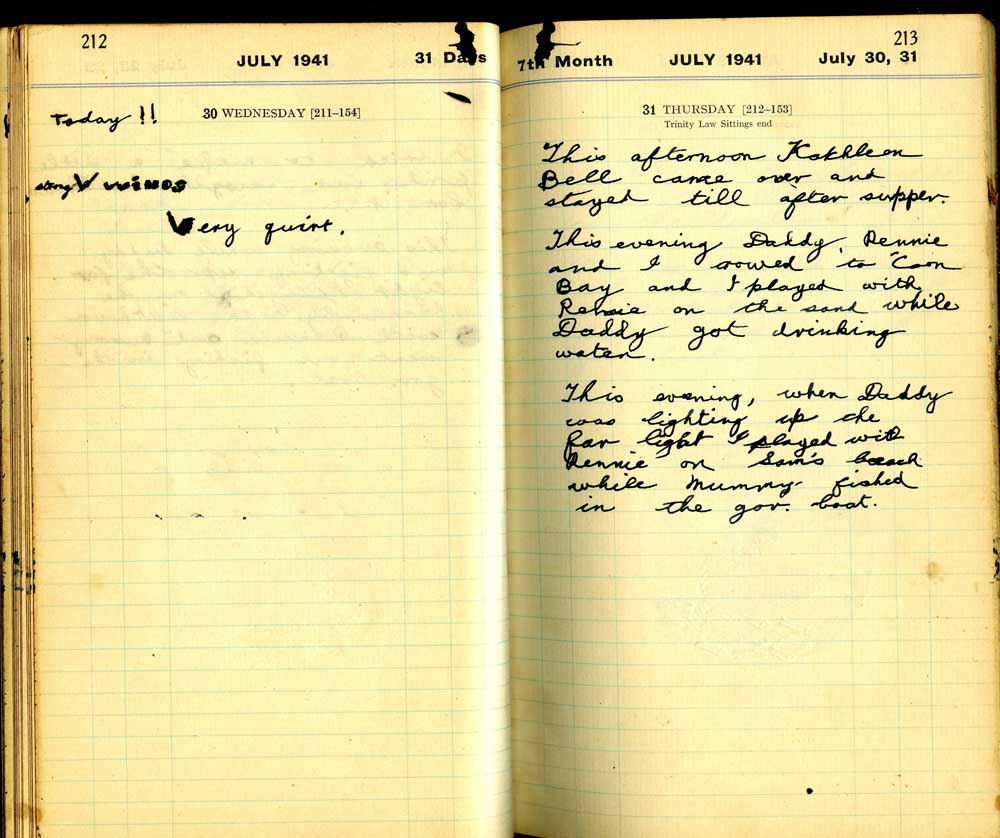 212
JULY 1941
31 Days
30 WEDNESDAY [211–154]
Today !!
strong WINDS
Very quiet.
213
7th Month
JULY 1941
July 30, 31
31 THURSDAY [212–153]
Trinity Law Sittings end
This afternoon Kathleen
Bell came over and
stayed till after supper.
This evening Daddy, Rennie
and I rowed to Coon
Bay and I played with
Rennie on the sand while
Daddy got drinking
water.
This evening, when Daddy
was lighting up the
far light I played with
Rennie on Sam's beach
while Mummy fished
in the gov. boat.